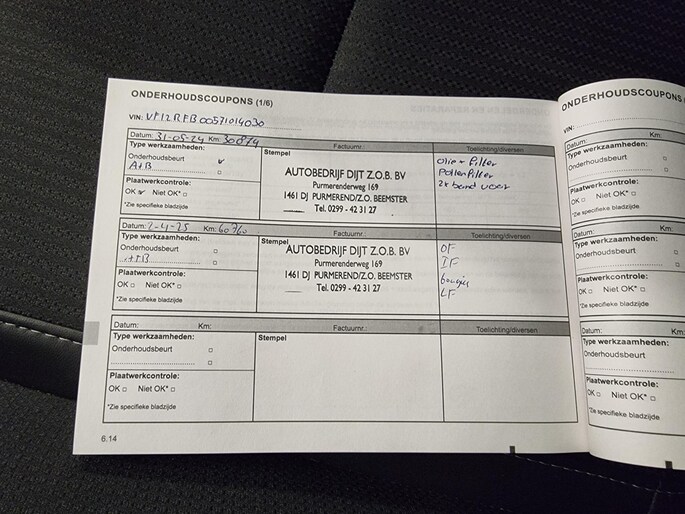 ONDERHOUDSCOUPONS (1/6)
VIN: VF12RFB00571014030
Datum: 31-05-24 Km: 30874 Factuurnr.: Toelichting/diversen
Type werkzaamheden:
Onderhoudsbeurt ✓
A+B
Plaatwerkcontrole:
OK ✓ Niet OK* □
*Zie specifieke bladzijde
Stempel
AUTOBEDRIJF DIJT Z.O.B. BV
Purmerenderweg 169
1461 DJ PURMEREND/Z.O. BEEMSTER
Tel. 0299 - 42 31 27
olie + filter
Pollenfilter
2x band voor
Datum: 2-4-25 Km: 60760 Factuurnr.: Toelichting/diversen
Type werkzaamheden:
Onderhoudsbeurt □
A+B
Plaatwerkcontrole:
OK □ Niet OK* □
*Zie specifieke bladzijde
Stempel
AUTOBEDRIJF DIJT Z.O.B. BV
Purmerenderweg 169
1461 DJ PURMEREND/Z.O. BEEMSTER
Tel. 0299 - 42 31 27
OF
IF
bougie
LF
Datum: Km: Factuurnr.: Toelichting/diversen
Type werkzaamheden:
Onderhoudsbeurt □
□
Plaatwerkcontrole:
OK □ Niet OK* □
*Zie specifieke bladzijde
Stempel
6.14
ONDERHOUDSCOUPONS
VIN:
Datum: Km:
Type werkzaamheden:
Onderhoudsbeurt □
□
Plaatwerkcontrole:
OK □ Niet OK* □
*Zie specifieke bladzijde
Datum: Km:
Type werkzaamheden:
Onderhoudsbeurt □
□
Plaatwerkcontrole:
OK □ Niet OK* □
*Zie specifieke bladzijde
Datum: Km:
Type werkzaamheden:
Onderhoudsbeurt □
□
Plaatwerkcontrole:
OK □ Niet OK* □
*Zie specifieke bladzijde